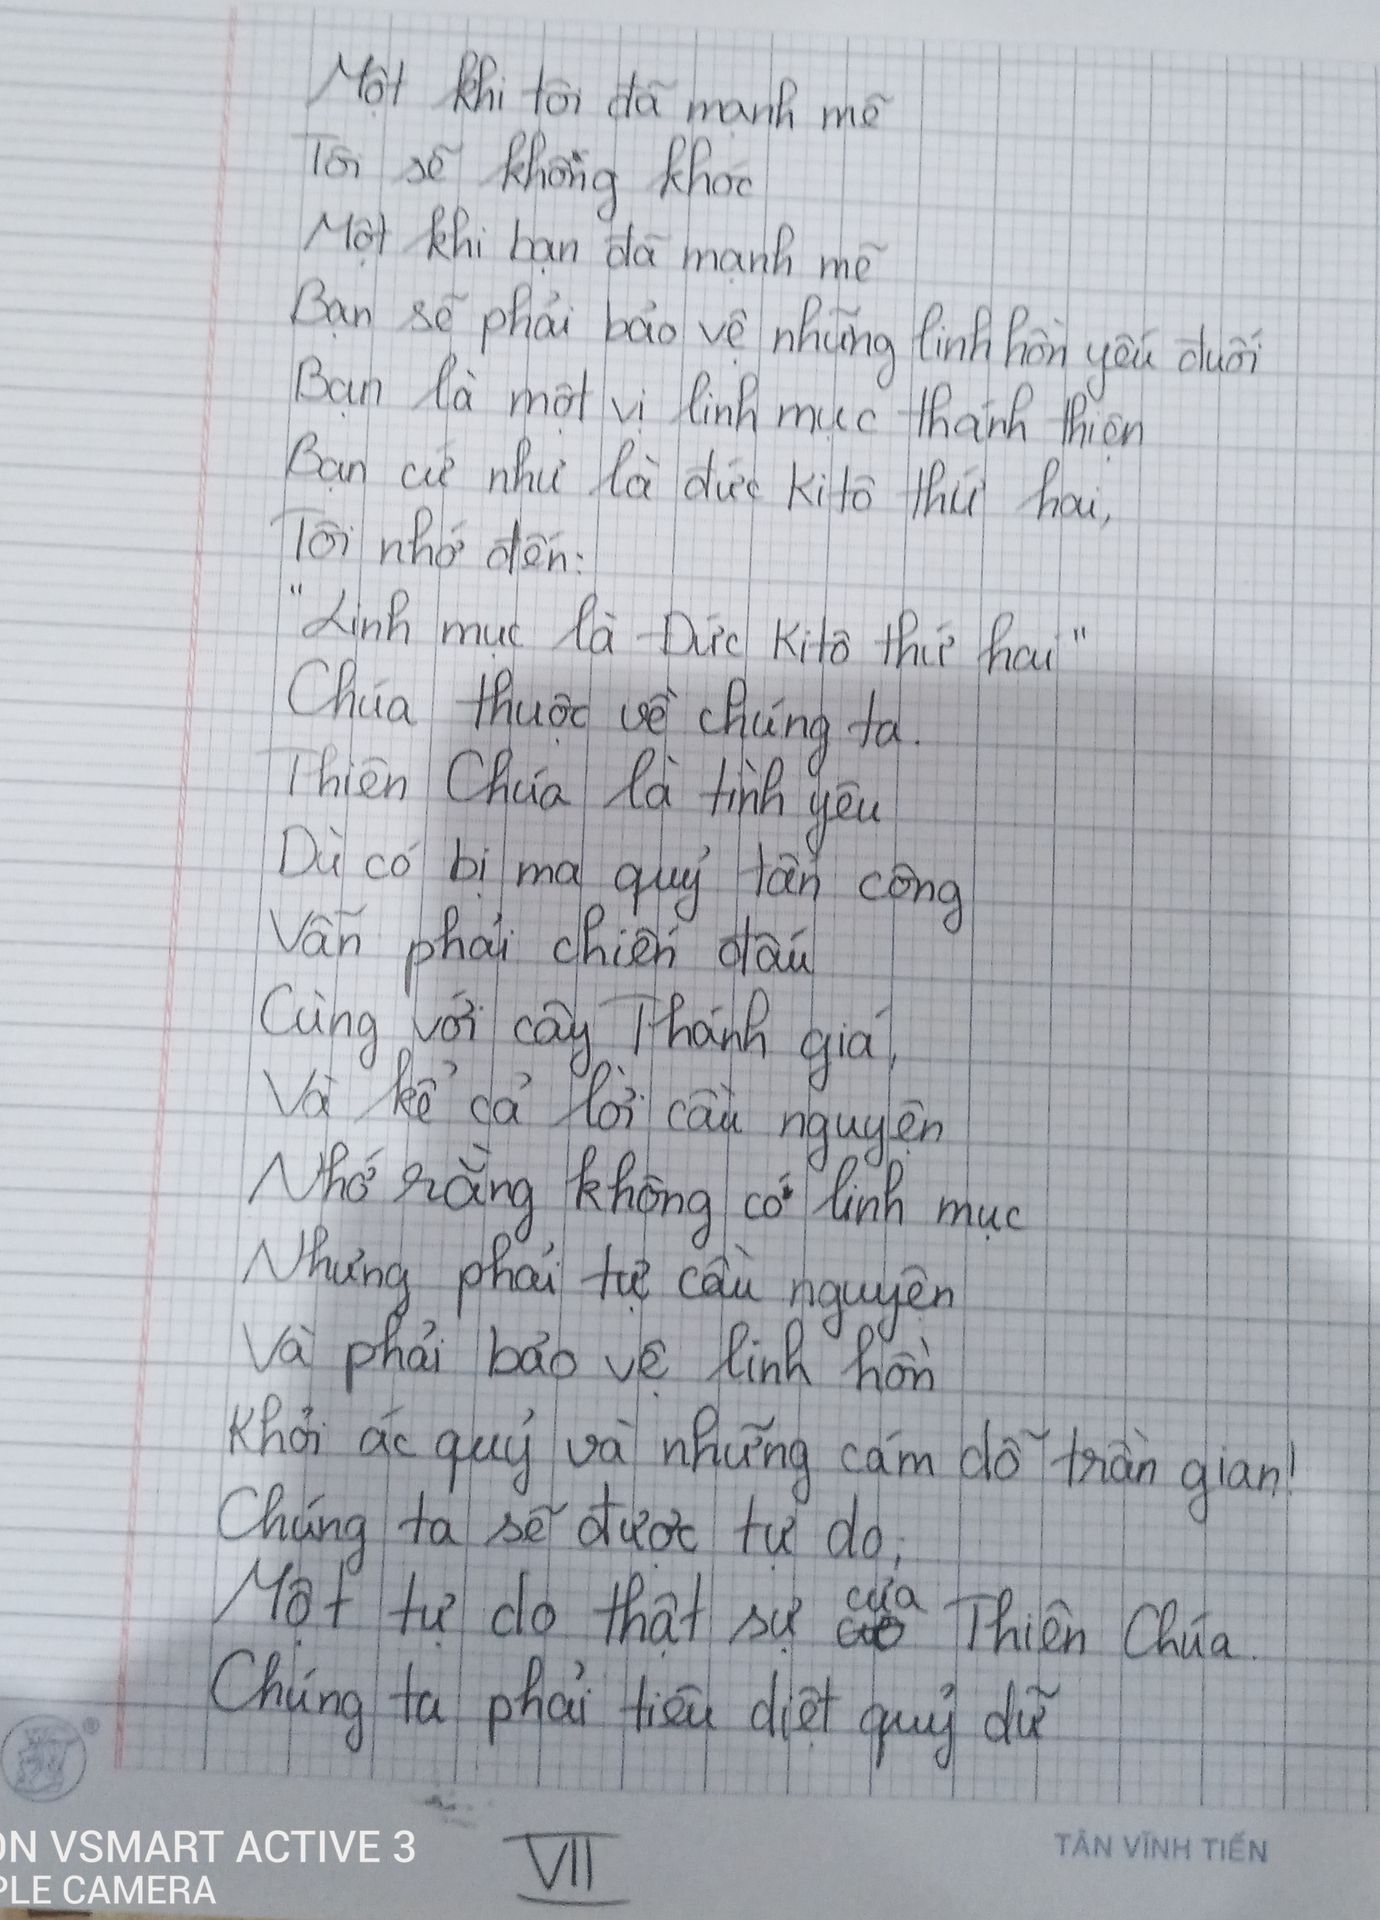 Một khi tôi đã mạnh mẽ
Tôi sẽ không khóc
Một khi bạn đã mạnh mẽ
Bạn sẽ phải bảo vệ những linh hồn yếu đuối
Bạn là một vị linh mục thánh thiện
Bạn cứ như là đức Kitô thứ hai,
Tôi nhớ đến:
"Linh mục là Đức Kitô thứ hai"
Chúa thuộc về chúng ta.
Thiên Chúa là tình yêu
Dù có bị ma quỷ tấn công
Vẫn phải chiến đấu
Cùng với cây Thánh giá,
Và kể cả lời cầu nguyện
Nhớ rằng không có linh mục
Nhưng phải tự cầu nguyện
Và phải bảo vệ linh hồn
Khỏi ác quỷ và những cám dỗ trần gian!
Chúng ta sẽ được tự do,
Một tự do thật sự của Thiên Chúa.
Chúng ta phải tiêu diệt quỷ dữ
VII
TÂN VĨNH TIẾN
ON VSMART ACTIVE 3
PLE CAMERA